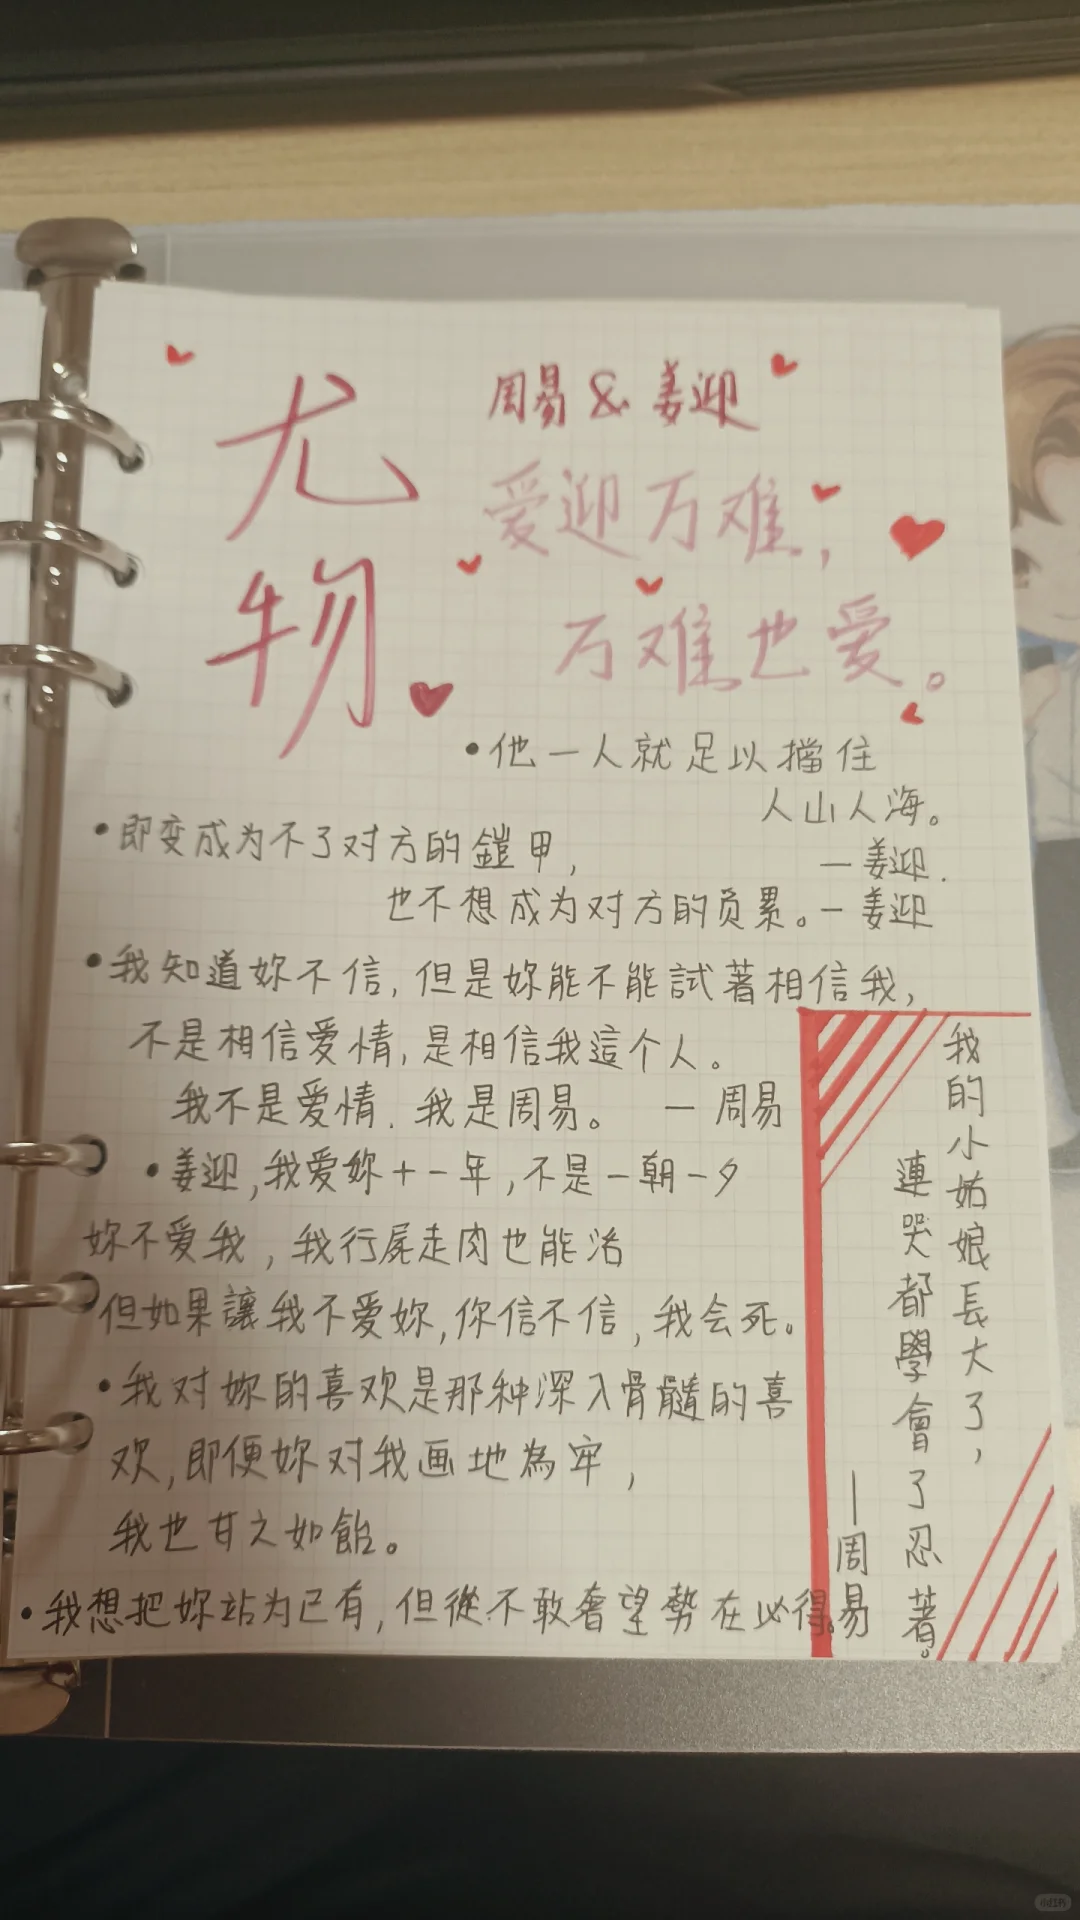 尤物
周易 & 姜迎
爱迎万难，
万难也爱。
•他一人就足以擋住
人山人海。
—姜迎.
•即变成为不了对方的鎧甲，
也不想成为对方的负累。—姜迎
•我知道妳不信，但是妳能不能試著相信我，
不是相信爱情，是相信我這个人。
我不是爱情．我是周易。 —周易
•姜迎，我爱妳十一年，不是一朝一夕
妳不爱我，我行屍走肉也能活
但如果讓我不爱妳，你信不信，我会死。
•我对妳的喜欢是那种深入骨髓的喜
欢，即便妳对我画地為牢，
我也甘之如飴。
•我想把妳站为己有，但從不敢奢望勢在必得。
我的小姑娘長大了，
連哭都學會了忍著。
—周易